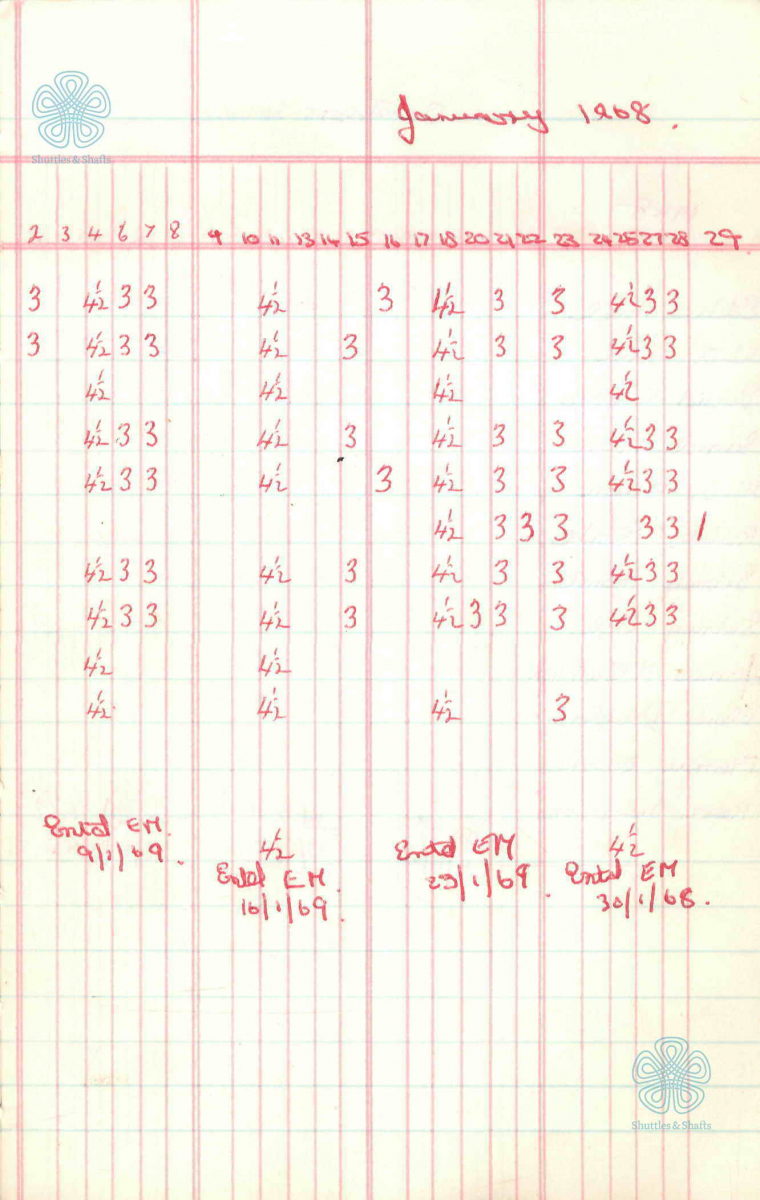 January 1968.
Shuttles & Shafts
2 3 4 6 7 8 9 10 11 13 14 15 16 17 18 20 21 22 23 24 25 27 28 29
3 4½ 3 3 4½ 3 4½ 3 3 4½ 3 3
3 4½ 3 3 4½ 3 4½ 3 3 4½ 3 3
4½ 4½ 4½ 4½
4½ 3 3 4½ 3 4½ 3 3 4½ 3 3
4½ 3 3 4½ 3 4½ 3 3 4½ 3 3
4½ 3 3 3 3 3 1
4½ 3 3 4½ 3 4½ 3 3 4½ 3 3
4½ 3 3 4½ 3 4½ 3 3 3 4½ 3 3
4½ 4½
4½ 4½ 4½ 3
Entd EM.
9/1/69.
4½
Entd EM.
16/1/69.
Entd EM
23/1/69.
4½
Entd EM
30/1/68.
Shuttles & Shafts